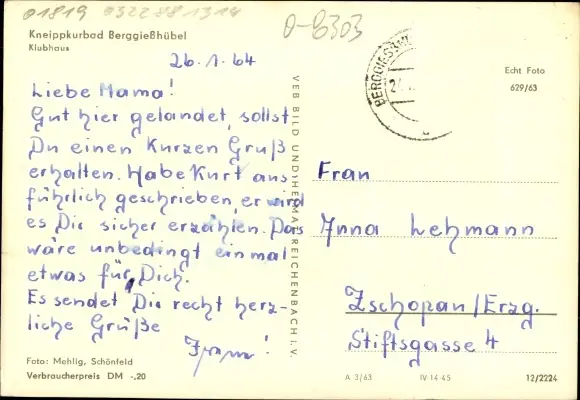 01819 0322881314
0-8303
Kneippkurbad Berggießhübel
Klubhaus
26.1.64
Liebe Mama!
Gut hier gelandet, sollst
Du einen kurzen Gruß
erhalten. Habe Kurt aus-
führlich geschrieben, er wird
es Dir sicher erzählen. Das
wäre unbedingt einmal
etwas für Dich.
Es sendet Dir recht herz-
liche Grüße
Foto: Mehlig, Schönfeld
Verbraucherpreis DM -,20
VEB BILD UND HEIMAT REICHENBACH I. V.
BERGGIESSHÜ
Echt Foto
629/63
Frau
Anna Lehmann
Zschopau/Erzg.
Stiftsgasse 4
A 3/63 IV-14-45 12/2224